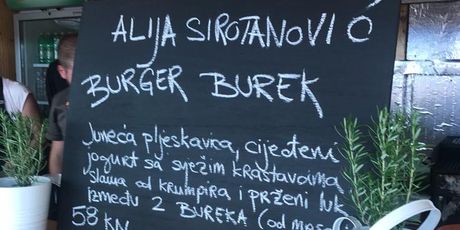 ALIJA SIROTANOVIĆ
BURGER BUREK
Juneća pljeskavica, cijeđeni
jogurt sa svježim krastavcima,
slama od krumpira i prženi luk
između 2 BUREKA (od mesa)
58 KN